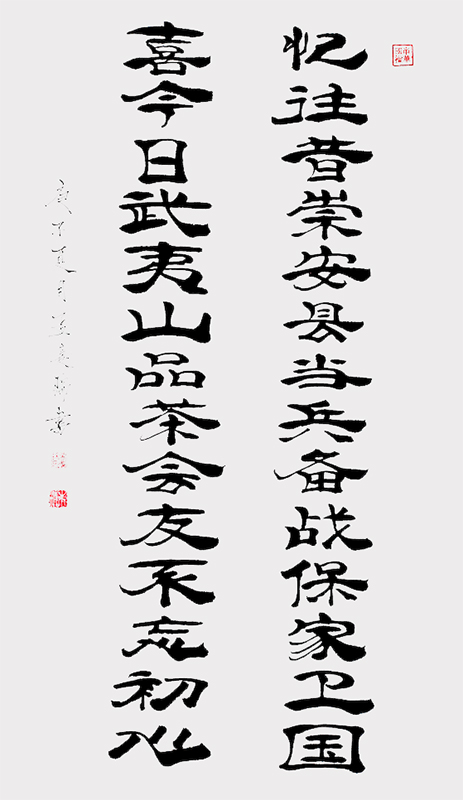 忆往昔崇安县当兵备战保家卫国
喜今日武夷山品茶会友不忘初心
庚子夏月